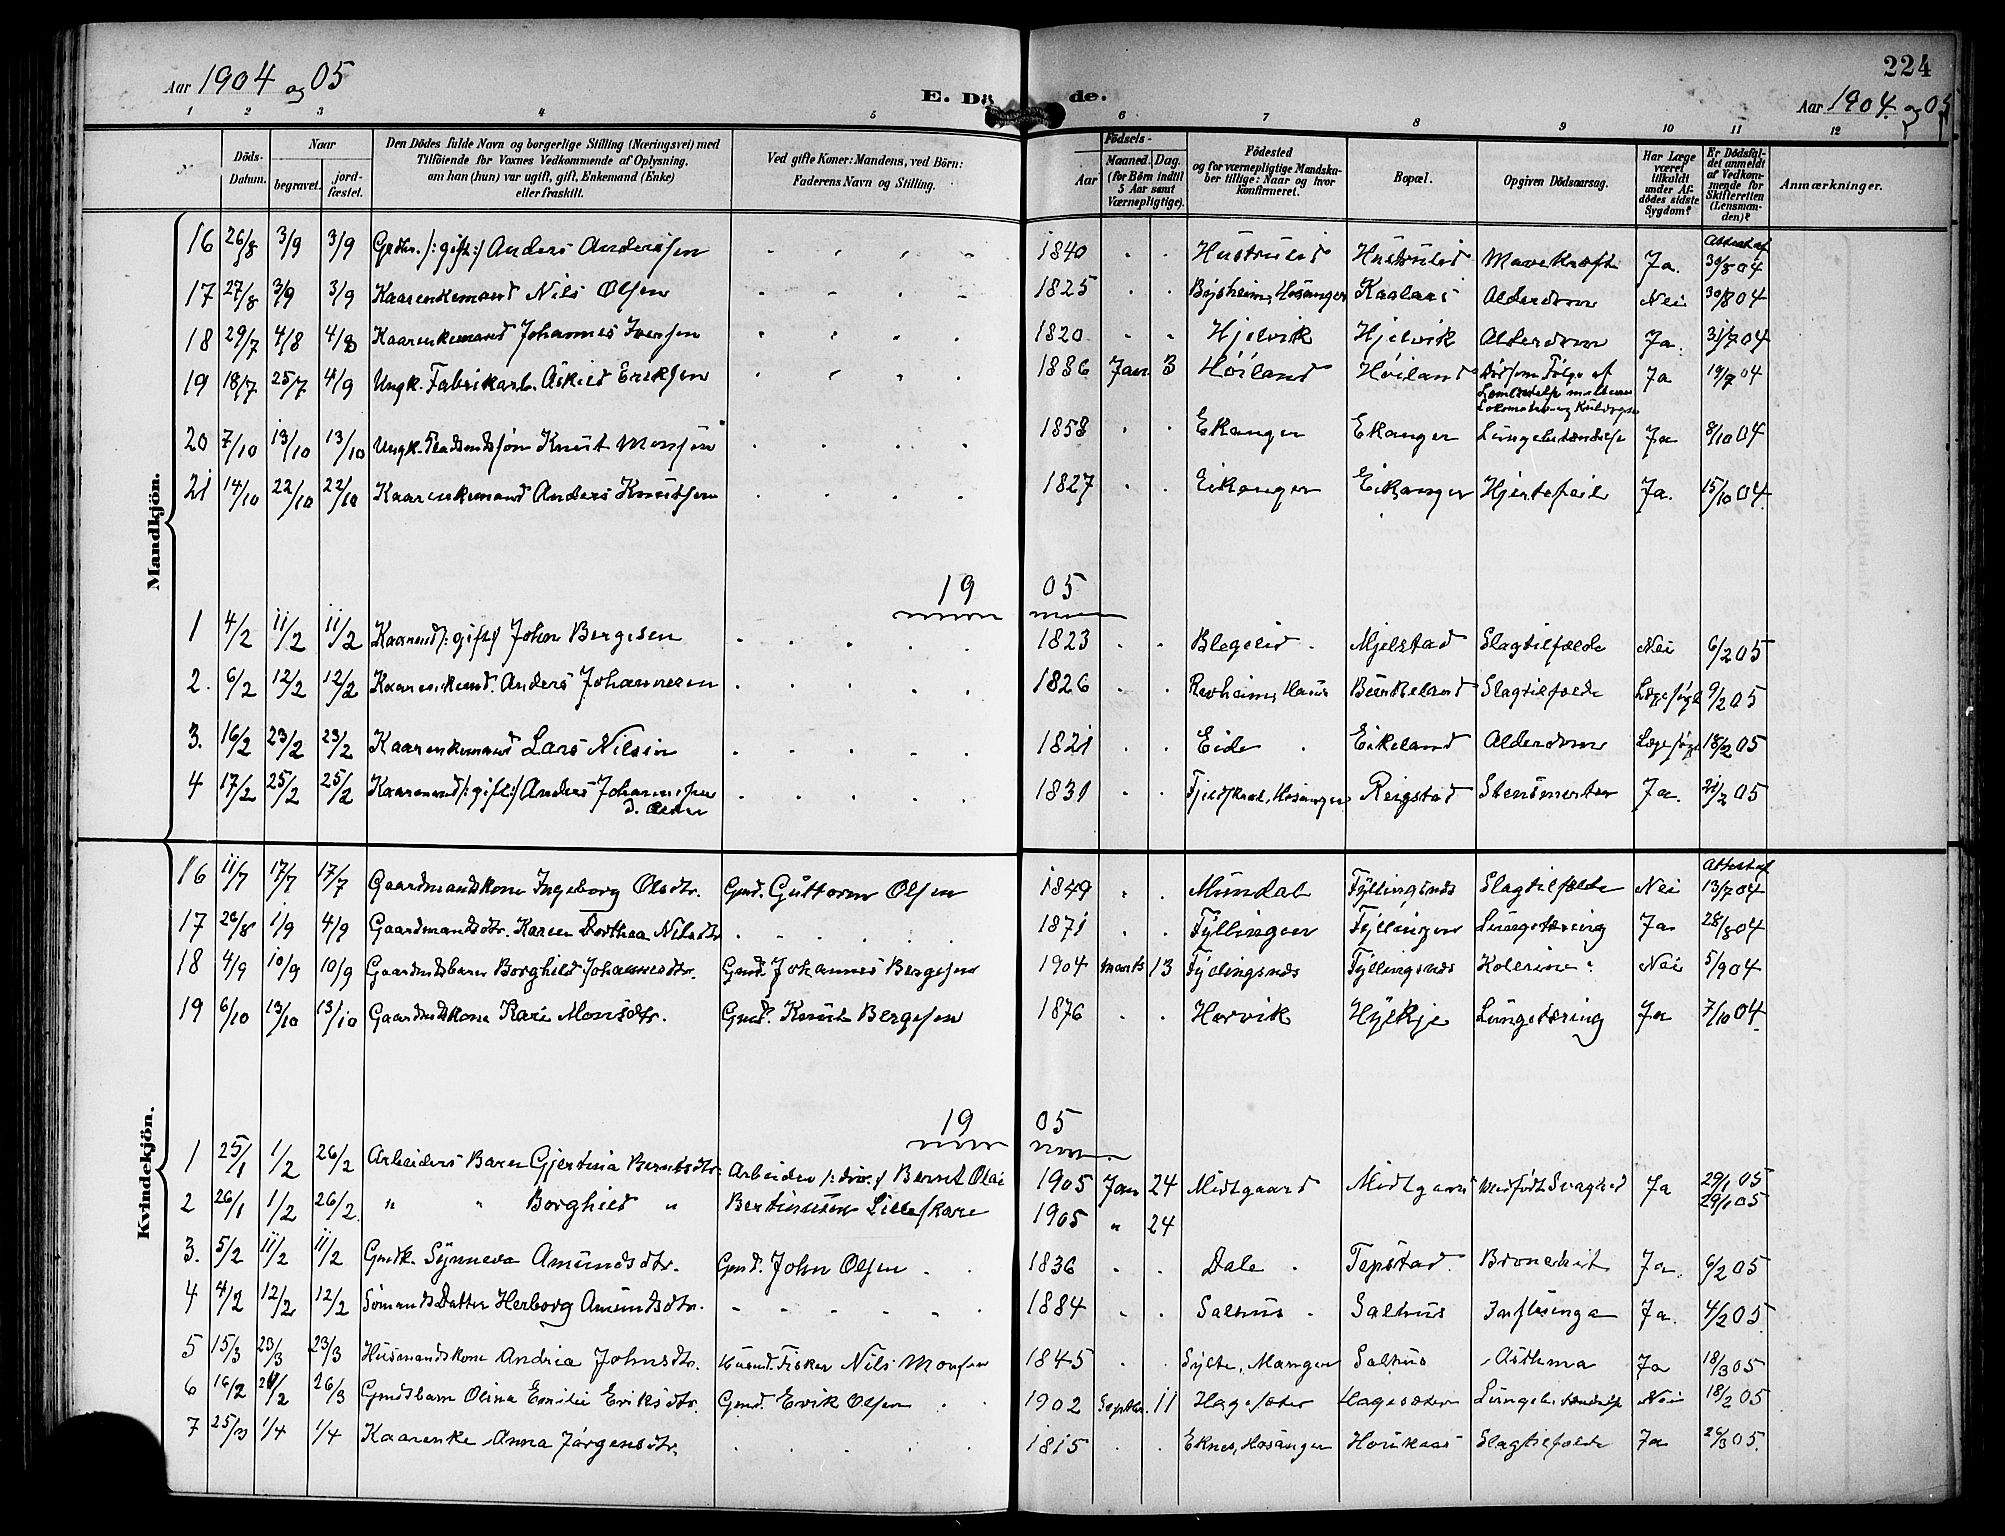 Aar 1904 og 05
E. Dö de.
224
Aar 1904 og 05
1 2 3 4 5 6 7 8 9 10 11 12
Döds-Datum.
Naar
begravet.
jord-fæstet.
Den Dödes fulde Navn og borgerlige Stilling (Næringsvei) med
Tilföiende for Voxnes Vedkommende af Oplysning,
om han (hun) var ugift, gift, Enkemand (Enke)
eller fraskilt.
Ved gifte Koner: Mandens, ved Börn:
Faderens Navn og Stilling.
Födsels-
Aar
Maaned. Dag.
(for Börn indtil
5 Aar samt
Værnepligtige).
Födested
og for værnepligtige Mandska-
ber tillige: Naar og hvor
konfirmeret.
Bopæl.
Opgiven Dödsaarsag.
Har Læge
været
tilkaldt
under Af-
dödes sidste
Sygdom?
Er Dödsfal-
det anmeldt
af Vedkom-
mende for
Skifteretten
(Lensman-
den)?
Anmærkninger.
Mandkjön.
16 26/8 3/9 3/9 Grdbr. /:gift:/ Anders Anderssen 1840 Hustrulid Hustrulid Mavekræft Ja. Attest af 30/8 04
17 27/8 3/9 3/9 Kaarenkemand Nils Olsen 1825 Bysheim, Hosanger Kaalaas Alderdom Nei 30/8 04
18 29/7 4/8 4/8 Kaarenkemand Johannes Iversen 1820 Hjelvik Hjelvik Alderdom Ja. 31/7 04
19 18/7 25/7 4/9 Ungk. Fabrikarb. Askild Eriksen 1886 Jan 3 Höiland Höiland Död som Fölge af Ja 19/7 04
Lokomotiv og Kulvogn
20 7/10 13/10 13/10 Ungk. Knut Monsen 1858 Ekanger Ekanger Lungebetændelse Ja 8/10 04
21 14/10 22/10 22/10 Kaarenkemand Anders Knutsen 1827 Eikanger Eikanger Hjertefeil Ja. 15/10 04
19 05
1 4/2 11/2 11/2 Kaarmd /:gift:/ John Bergesen 1823 Blegelid Mjelstad Slagtilfælde Nei 6/2 05
2. 6/2 12/2 12/2 Kaarenkemd. Anders Johannesen 1826 Revheim, Haus Birkeland Slagtilfælde Lægesögt 9/2 05
3. 16/2 23/2 23/2 Kaarenkemand Lars Nilsen 1821 Eide Eikeland Alderdom Lægesögt 18/2 05
4 17/2 25/2 25/2 Kaaremand /:gift:/ Anders Johannesen 1831 Fjeldskaal, Hosanger Reigstad Stensmerter Ja. 21/2 05
d. Ældre
Kvindekjön.
16 11/7 17/7 17/7 Gaardmandskone Ingeborg Olsdtr. Gmd. Guttorm Olsen 1849 Mundal Fyllingsnæs Slagtilfælde Nei Attest af 13/7 04
17 26/8 1/9 4/9 Gaardmandsdtr. Karen Dorthea Nilsdtr 1871 Fyllingen Fyllingen Lungetæring Ja 28/8 04
18 4/9 10/9 10/9 Gaardmdsbarn Borghild Johannesdtr. Gmd. Johannes Bergesen 1904 Marts 13 Fyllingsnæs Fyllingsnæs Kolerine Nei 5/9 04
19 6/10 13/10 13/10 Gaardmdskone Kari Monsdtr. Gmd. Knut Bergesen 1876 Horvik Hylkje Lungetæring Ja 7/10 04
19 05
1 25/1 1/2 26/2 Arbeiders Barn Gjertina Berntsdtr. Arbeider Bernt Olai 1905 Jan 24 Midtgaard Midtgaard Medfödt Svaghed Ja 29/1 05
2 26/1 1/2 26/2. " " Borghild " Bertinusen Lilleskare 1905 " 24 29/1 05
3. 5/2 11/2 11/2 Gmdk. Synneva Amundsdtr. Gmd. John Olsen 1836 Dale Tepstad Bronchit Ja. 6/2 05
4 4/2 12/2 12/2 Sömands Datter Herborg Amundsdtr. 1884 Salhus Salhus Influenza Ja. 4/2 05
5 15/3 23/3 23/3 Husmandskone Andrea Johnsdtr. Husmd. Fisker Nils Monsen 1845 Sylte, Manger Salhus Asthma Ja 18/3 05
6 16/2 26/3 Gmdsbarn Olina Emilie Eriksdtr. Gmd. Erik Olsen 1902 Septbr. 11 Hagesæter Hagesæter Lungebetændelse Nei 18/2 05
7 25/3 1/4 1/4 Kaarenke Anna Jörgensdtr. 1815 Eknes, Hosanger Houkaas Slagtilfælde Ja 26/3 05.